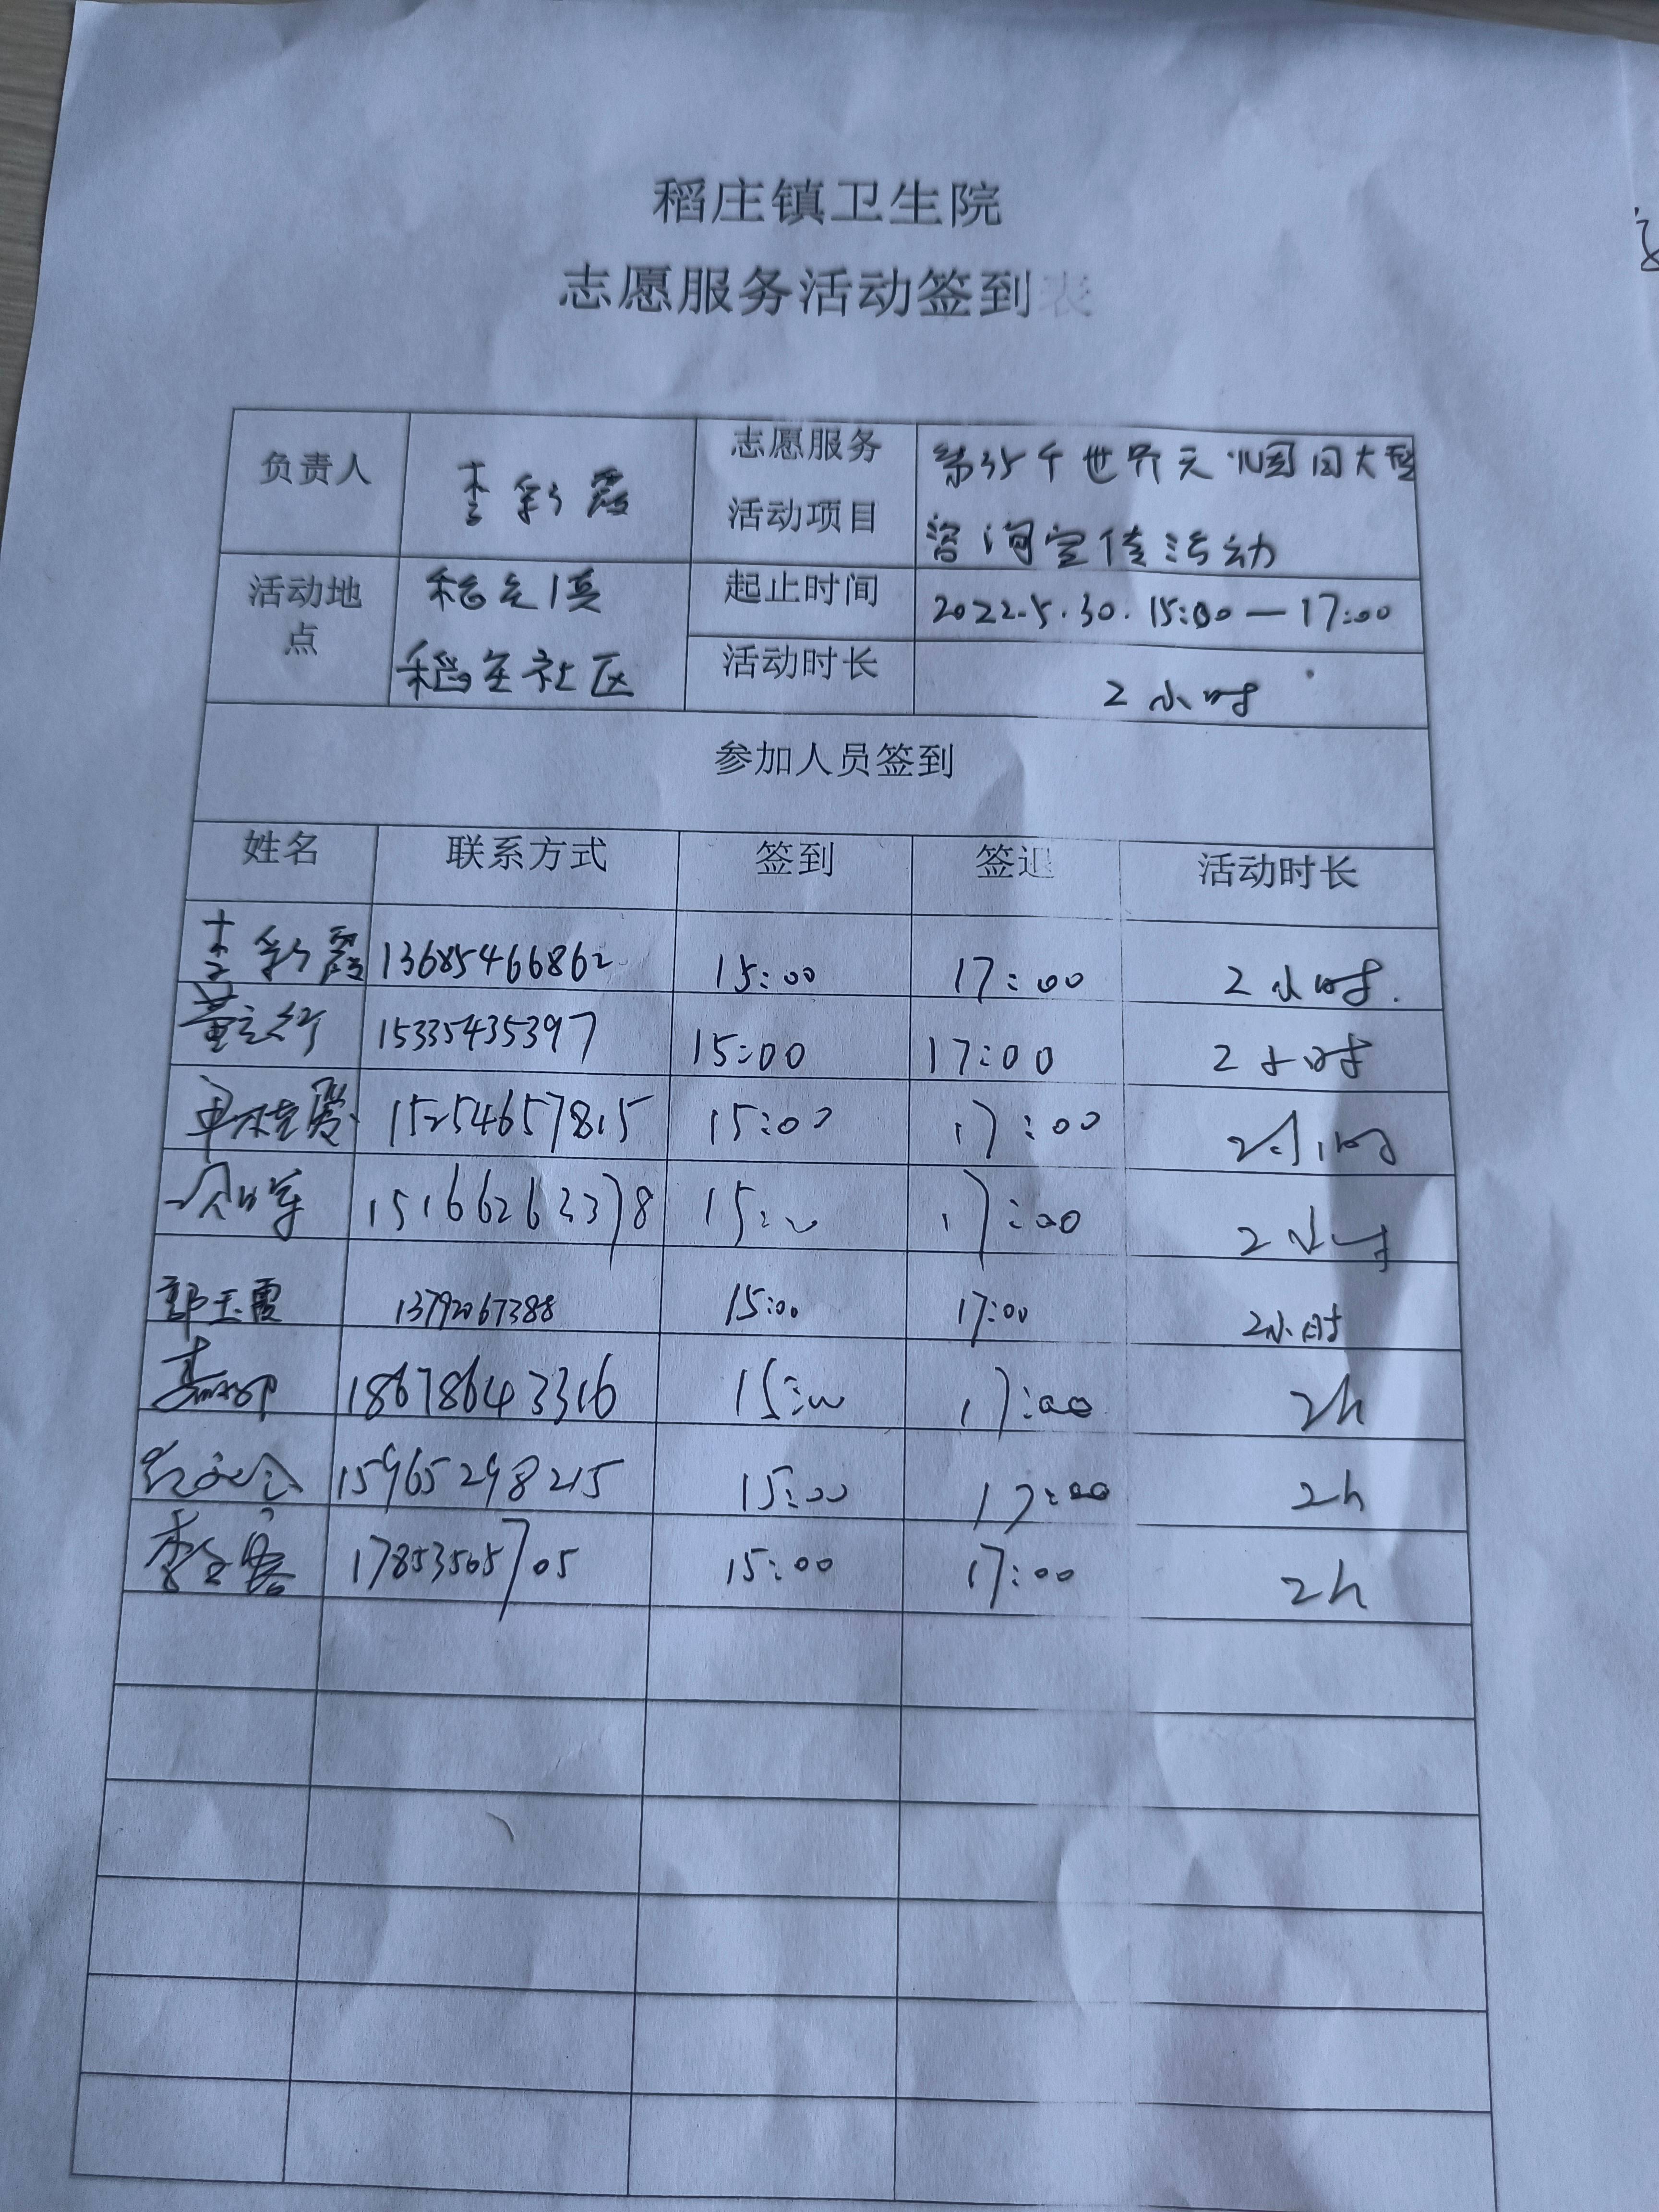 稻庄镇卫生院
志愿服务活动签到表
负责人 李彩霞 志愿服务活动项目 第35个世界无烟日大型
咨询宣传活动
活动地点 稻庄镇
稻庄社区
起止时间 2022.5.30. 15:00—17:00
活动时长 2小时
参加人员签到
姓名 联系方式 签到 签退 活动时长
李彩霞 13685466862 15:00 17:00 2小时.
董立行 15335435397 15:00 17:00 2小时
15254657815 15:00 17:00 2小时
15166263378 15:00 17:00 2小时
郭玉霞 13792067388 15:00 17:00 2小时
18678643316 15:00 17:00 2h
15965298215 15:00 17:00 2h
17853505705 15:00 17:00 2h